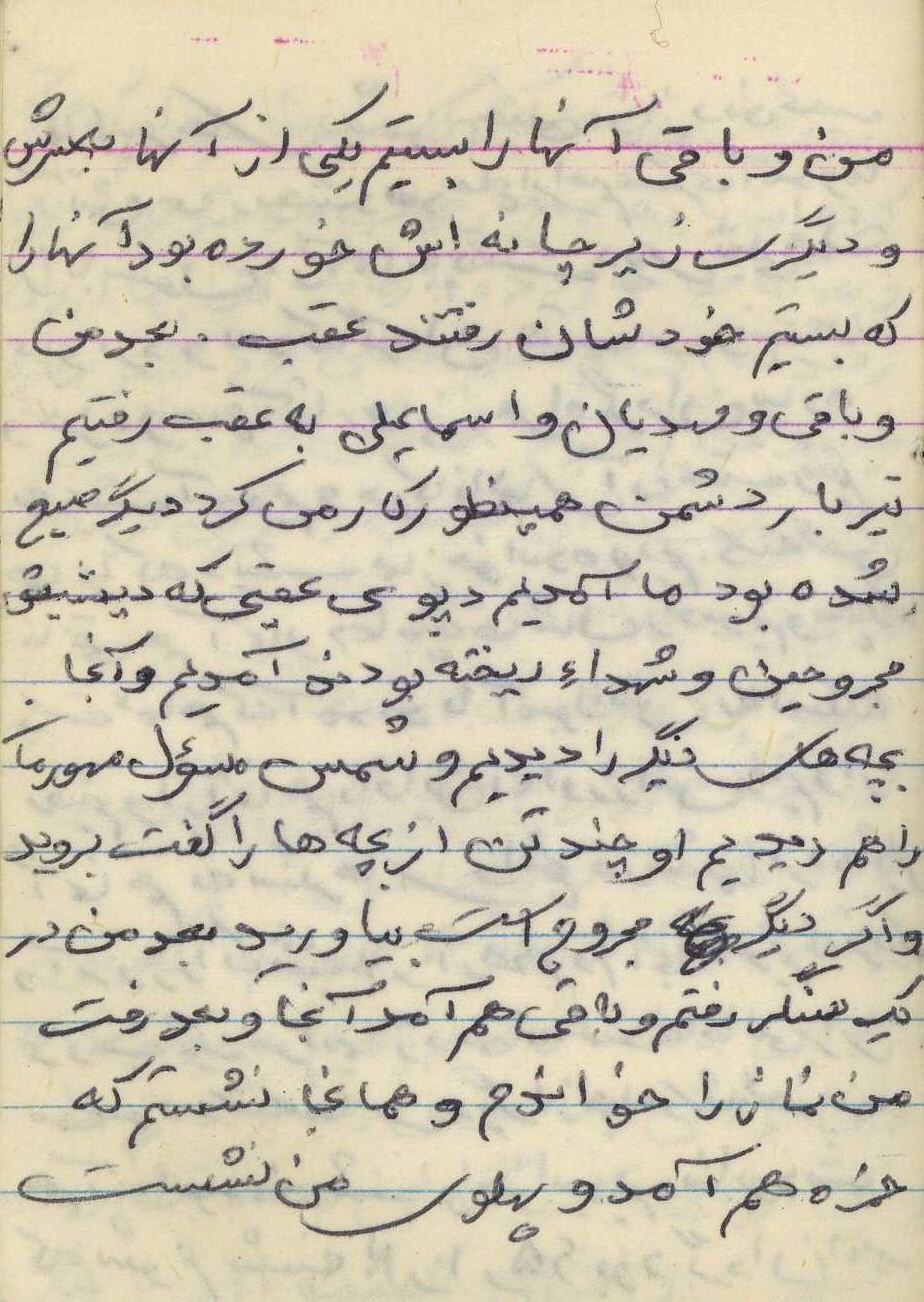 من و باقی آنها را بستیم یکی از آنها بسرش
و دیگری زیر چانه اش خورده بود آنها را
که بستیم خودشان رفتند عقب . بعد من
و باقی و مهدیان و اسمایعلی به عقب رفتیم
تیربار دشمن همینطور کار می کرد دیگر صبح
شده بود ما آمدیم دپوی عقبی که دپشپش
مجروحین و شهداء ریخته بودند آمدیم و آنجا
بچه های دیگر را دیدیم و شمس مسؤل محور ما
را هم دیدیم او چند تن از بچه ها را گفت بروید
و اگر دیگر مجروح است بیاورید بعد من در
یک سنگر رفتم و باقی هم آمد آنجا و بعد رفت
من نماز را خواندم و همانجا نشستم که
حمزه هم آمد و پهلوی من نشست